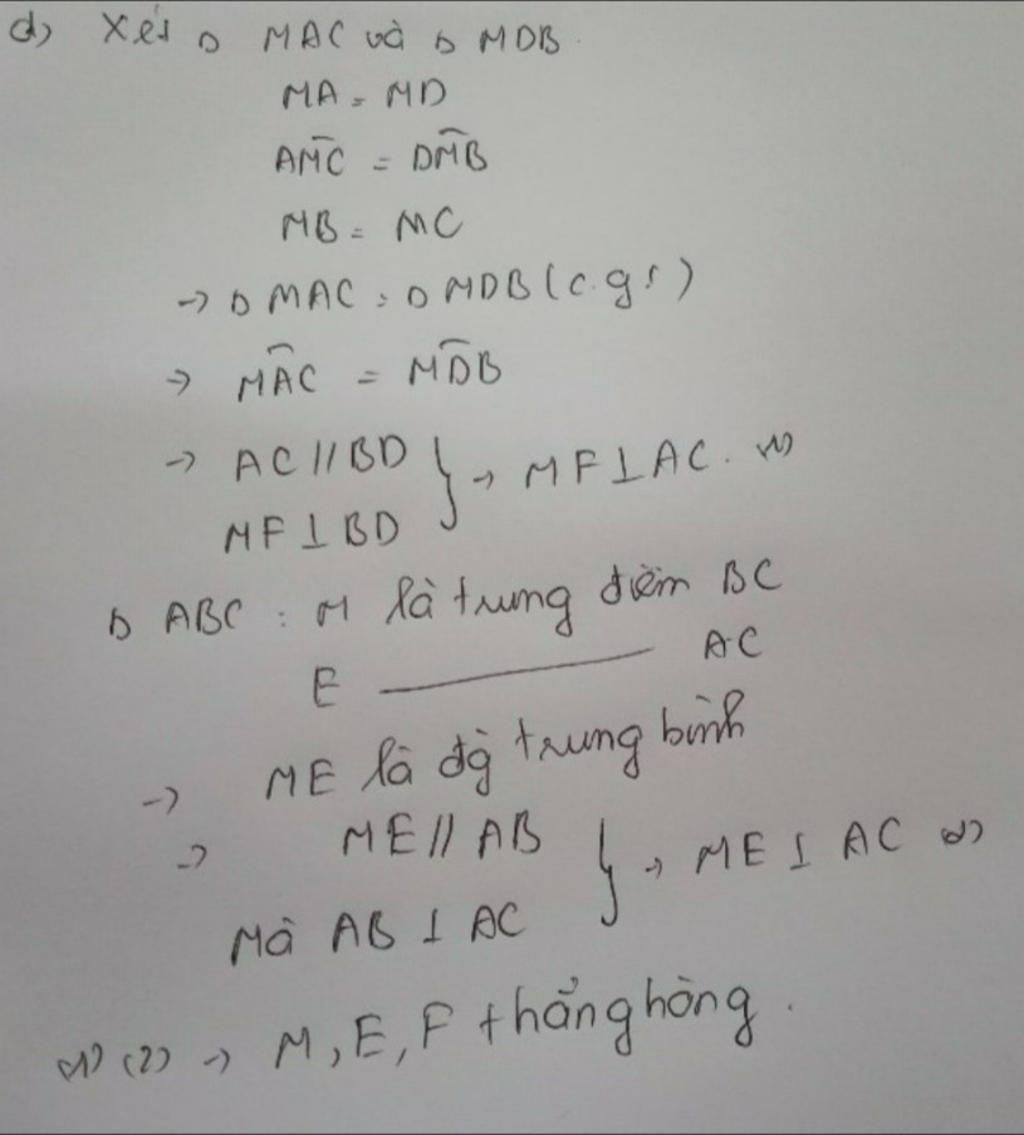 d) Xét Δ MAC và Δ MDB.
MA = MD
AM̂C = DM̂B
MB = MC
→ Δ MAC = Δ MDB (c.g.c)
→ MÂC = MD̂B
→ AC // BD } → MF ⊥ AC. (1)
MF ⊥ BD
Δ ABC : M là trung điểm BC
E ——— AC
→ ME là đg trung bình
→ ME // AB } → ME ⊥ AC (2)
Mà AB ⊥ AC
(1) (2) → M, E, F thẳng hàng.